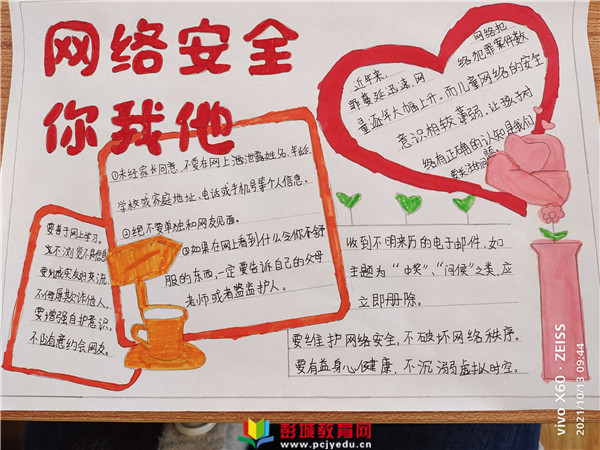 网络安全
你我他
近年来，网络犯
罪蔓延迅速，网络犯罪案件数
量逐年大幅上升。而儿童网络的安全
意识相较薄弱，让孩子对
络有正确的认知是我们
①未经家长同意，不要在网上泄露姓名、年龄、
学校或家庭地址、电话或手机号等个人信息。
②绝不要单独和网友见面。
③如果在网上看到什么令你不舒
服的东西，一定要告诉自己的父母
老师或者监监护人。
要善于网上学习，
不浏览不良信息
要诚实友好交流，
不侮辱欺诈他人，
要增强自护意识，
不随意约会网友。
收到不明来历的电子邮件，如
主题为“中奖”、“问侯”之类，应
立即删除。
要维护网络安全，不破坏网络秩序。
要有益身心健康，不沉溺虚拟时空。
vivo X60 · ZEISS
2021/10/13 09:44
彭城教育网
www.pcjyedu.cn